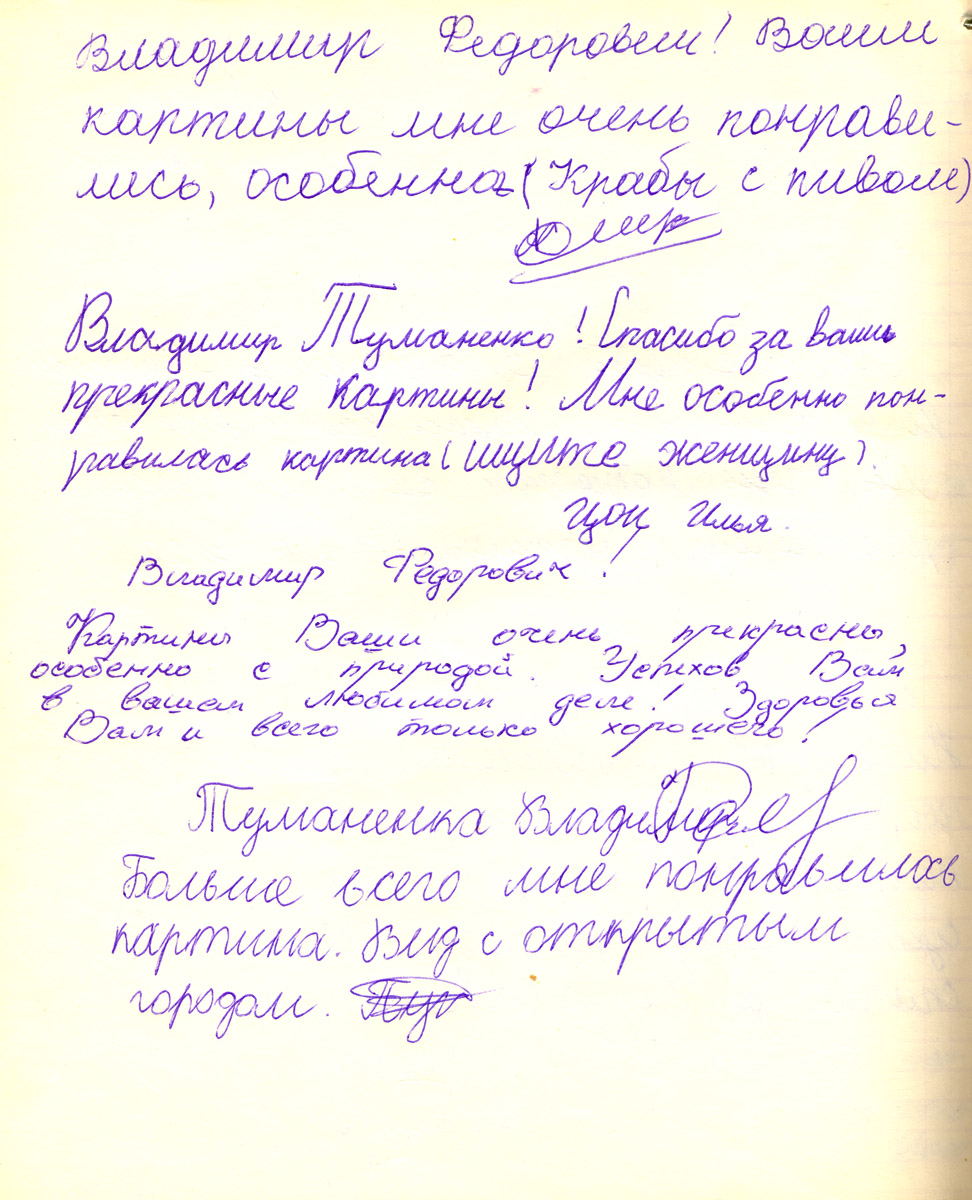 Владимир Федорович! Ваши
картины мне очень понрави-
лись, особенно (Крабы с пивом)
Владимир Туманенко! Спасибо за ваши
прекрасные картины! Мне особенно пон-
равилась картина (ищите женщину).
Цой Илья.
Владимир Федорович!
Картины Ваши очень прекрасны,
особенно с природой. Успехов Вам
в вашем любимом деле! Здоровья
Вам и всего только хорошего!
Туманенка
Больше всего мне понравилось
картина. Вид с открытым
городом.